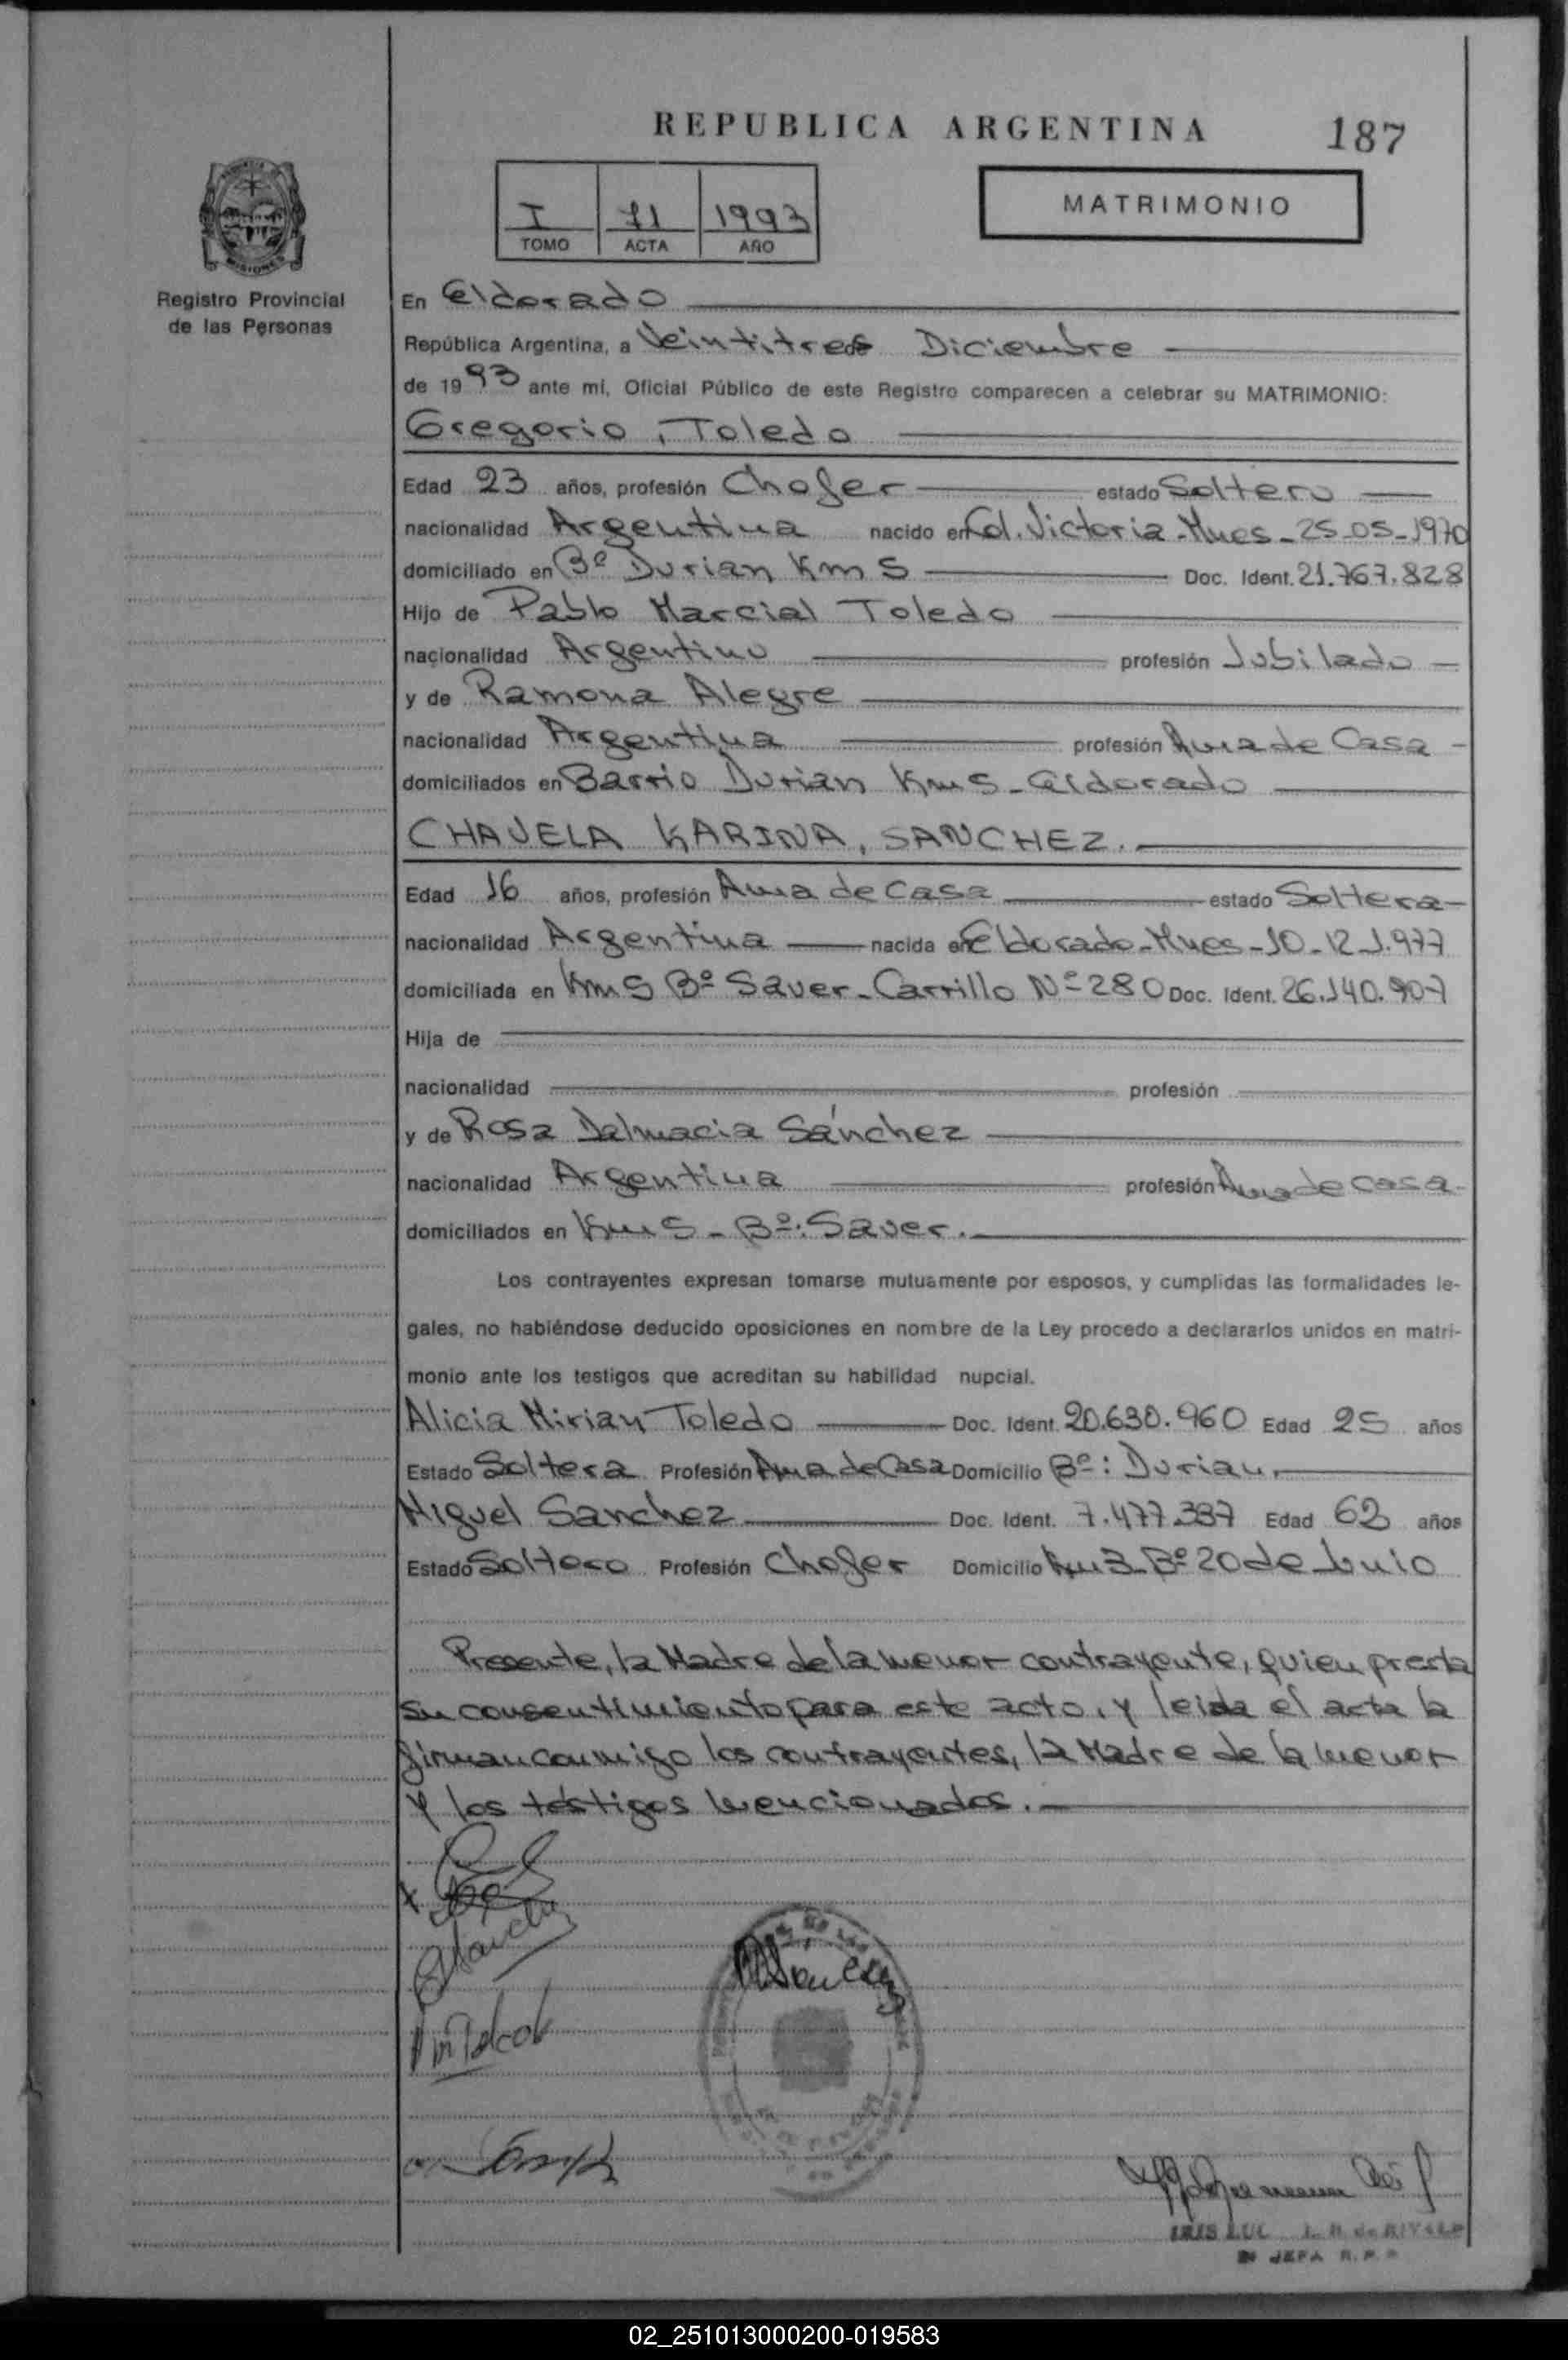 REPUBLICA ARGENTINA 187
I 71 1993
TOMO ACTA AÑO
MATRIMONIO
MISIONES
Registro Provincial
de las Personas
En Eldorado
República Argentina, a Veintitres de Diciembre
de 1993 ante mi, Oficial Público de este Registro comparecen a celebrar su MATRIMONIO:
Gregorio, Toledo
Edad 23 años, profesión Chofer estado Soltero
nacionalidad Argentina nacido en Col. Victoria-Mnes-25-05-1970
domiciliado en Bº Durian Km 5 Doc. Ident. 21.767.828
Hijo de Pablo Marcial Toledo
nacionalidad Argentino profesión Jubilado
y de Ramona Alegre
nacionalidad Argentina profesión Ama de Casa
domiciliados en Barrio Durian Km 5-Eldorado
CHAVELA KARINA, SANCHEZ.
Edad 16 años, profesión Ama de Casa estado Soltera
nacionalidad Argentina nacida en Eldorado-Mnes-10-12-1.977
domiciliada en Km 5 Bº Saver-Carrillo Nº 280 Doc. Ident. 26.140.907
Hija de
nacionalidad profesión
y de Rosa Dalmacia Sánchez
nacionalidad Argentina profesión Ama de casa
domiciliados en Km 5-Bº: Saver.
Los contrayentes expresan tomarse mutuamente por esposos, y cumplidas las formalidades le-
gales, no habiéndose deducido oposiciones en nombre de la Ley procedo a declararlos unidos en matri-
monio ante los testigos que acreditan su habilidad nupcial.
Alicia Mirian Toledo Doc. Ident. 20.630.960 Edad 25 años
Estado Soltera Profesión Ama de Casa Domicilio Bº: Durian.
Miguel Sanchez Doc. Ident. 7.477.387 Edad 62 años
Estado Soltero Profesión Chofer Domicilio Km 3-Bº 20 de Junio
Presente, la Madre de la menor contrayente, quien presta
su consentimiento para este acto, y leida el acta la
firman conmigo los contrayentes, la Madre de la menor
y los testigos mencionados.
IRIS de RIVALD
JEFA R.P.P
02_251013000200-019583